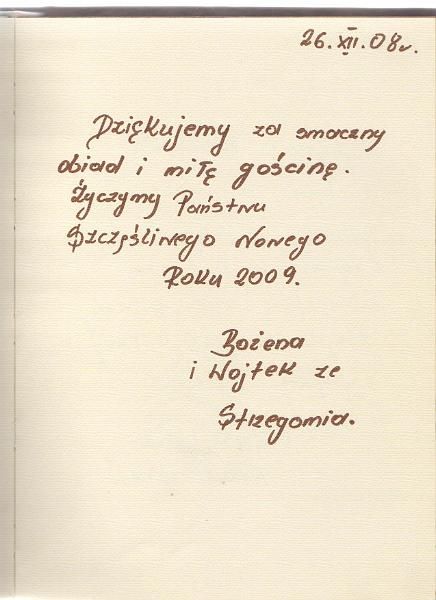 26.XII.08r.
Dziękujemy za smaczny
obiad i miłę gościnę.
Życzymy Państwu
Szczęśliwego Nowego
Roku 2009.
Bożena
i Wojtek ze
Strzegomia.